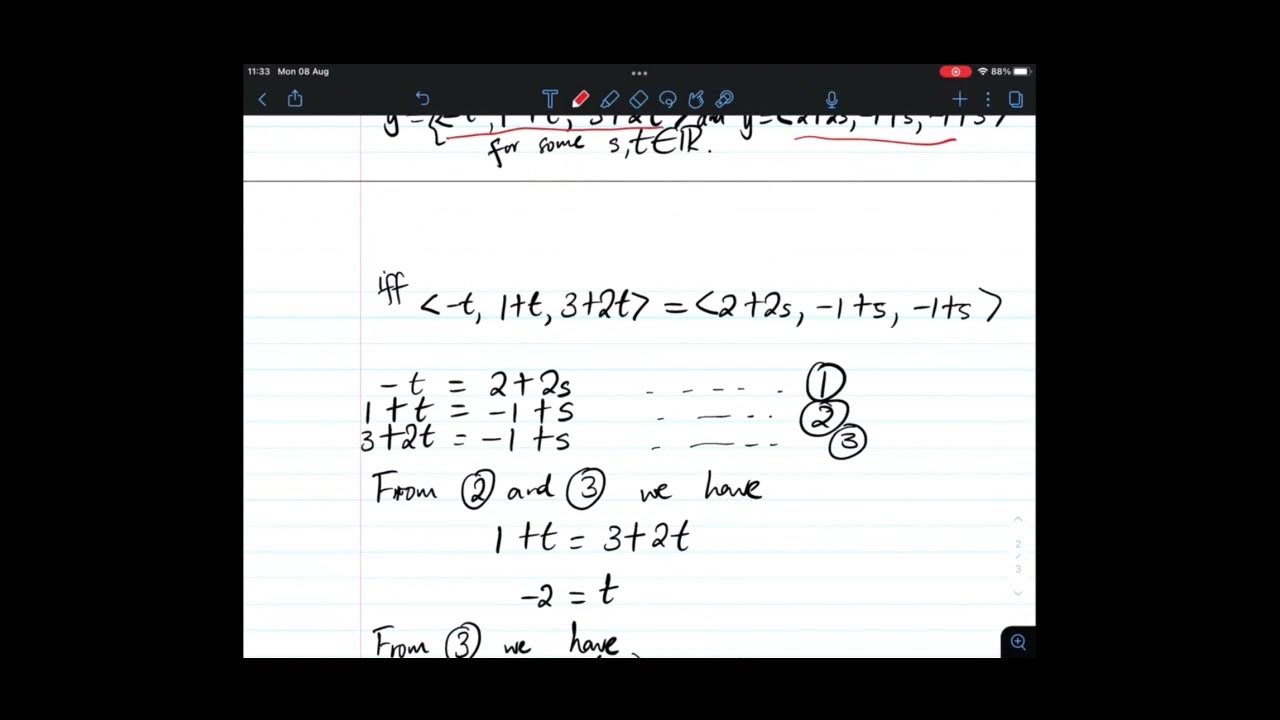 11:33 Mon 08 Aug
88%
y={<-t, 1+t, 3+2t> and y=<2+2s, -1+s, -1+s>
for some s,t∈ℝ.
iff <-t, 1+t, 3+2t> = <2+2s, -1+s, -1+s>
-t = 2+2s ------ ①
1+t = -1+s ------ ②
3+2t = -1+s ------ ③
From ② and ③ we have
1+t = 3+2t
-2 = t
From ③ we have
2
3